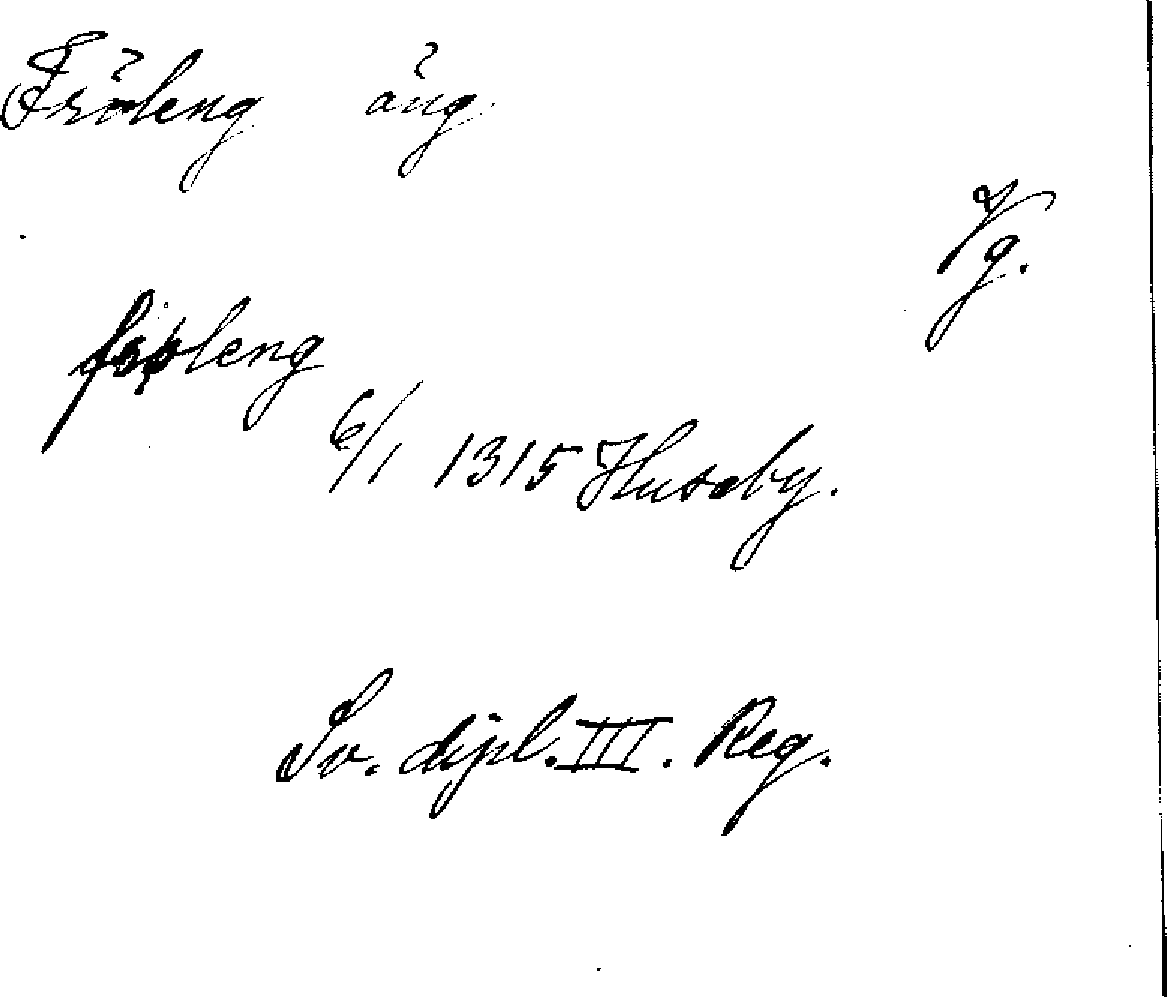 Fröleng äng
Vg.
frøleng
6/1 1315 Huseby.
Sv. dipl. III. Reg.